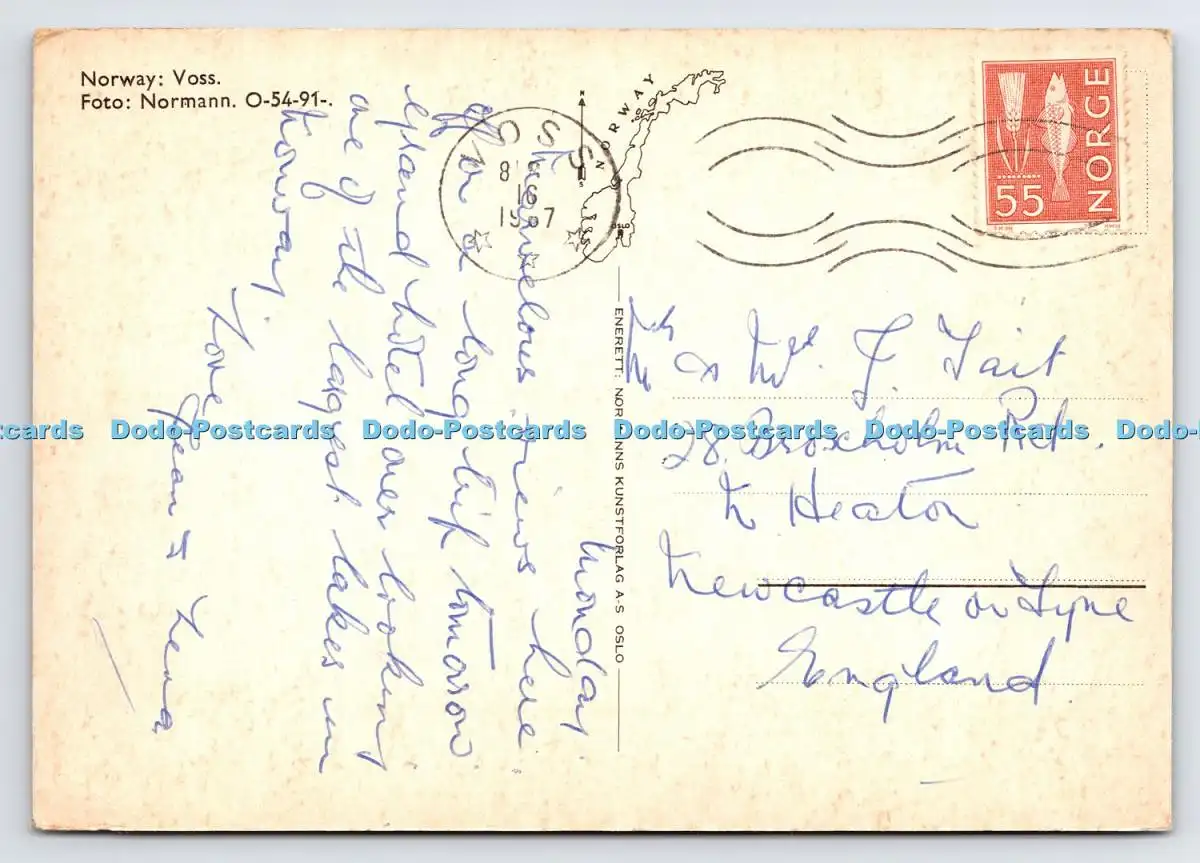 Norway: Voss.
Foto: Normann. O-54-91-.
Monday
Marvelous views here
off on a long trip tomorrow
grand hotel over looking
one of the largest lakes in
Norway.
Love
Jean &
VOSS
8
16
1967
NORWAY
N
S
OSLO
ENERETT: NORMANNS KUNSTFORLAG A-S OSLO
NORGE
55
Mr & Mrs J. Tait
28 Broxholm Rd.
N Heaton
Newcastle on Tyne
England
Dodo-Postcards Dodo-Postcards Dodo-Postcards Dodo-Postcards